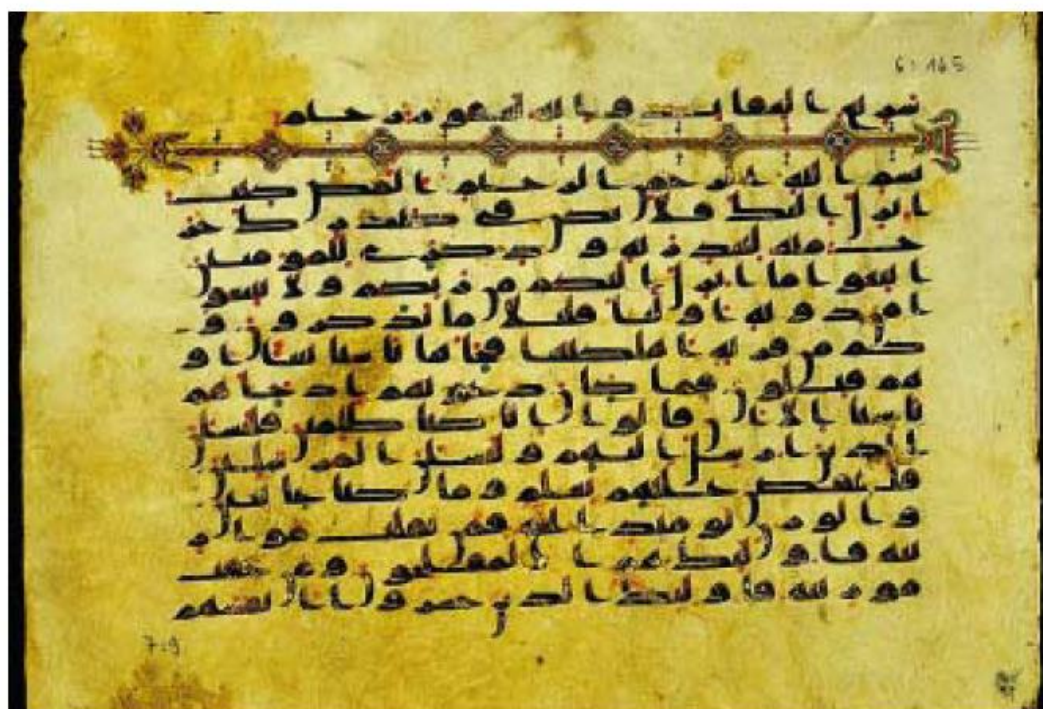 6:165
سريع العقاب وانه لغفور رحيم
بسم الله الرحمن الرحيم المص كتب
انزل اليك فلا يكن في صدرك حر
ج منه لتنذر به وذكرى للمومنين
اتبعوا ما انزل اليكم من ربكم ولا تتبعوا
من دونه اوليا قليلا ما تذكرون و
كم من قرية اهلكنها فجاها باسنا بيتا او
هم قايلون فما كان دعويهم اذ جاهم
باسنا الا ان قالوا انا كنا ظلمين فلنسلن
الذين ارسل اليهم ولنسلن المرسلين
فلنقصن عليهم بعلم وما كنا غايبين
والوزن يومئذ الحق فمن ثقلت موز
ينه فاوليك هم المفلحون ومن خفت
موزينه فاوليك الذين خسروا انفسهم
7:9